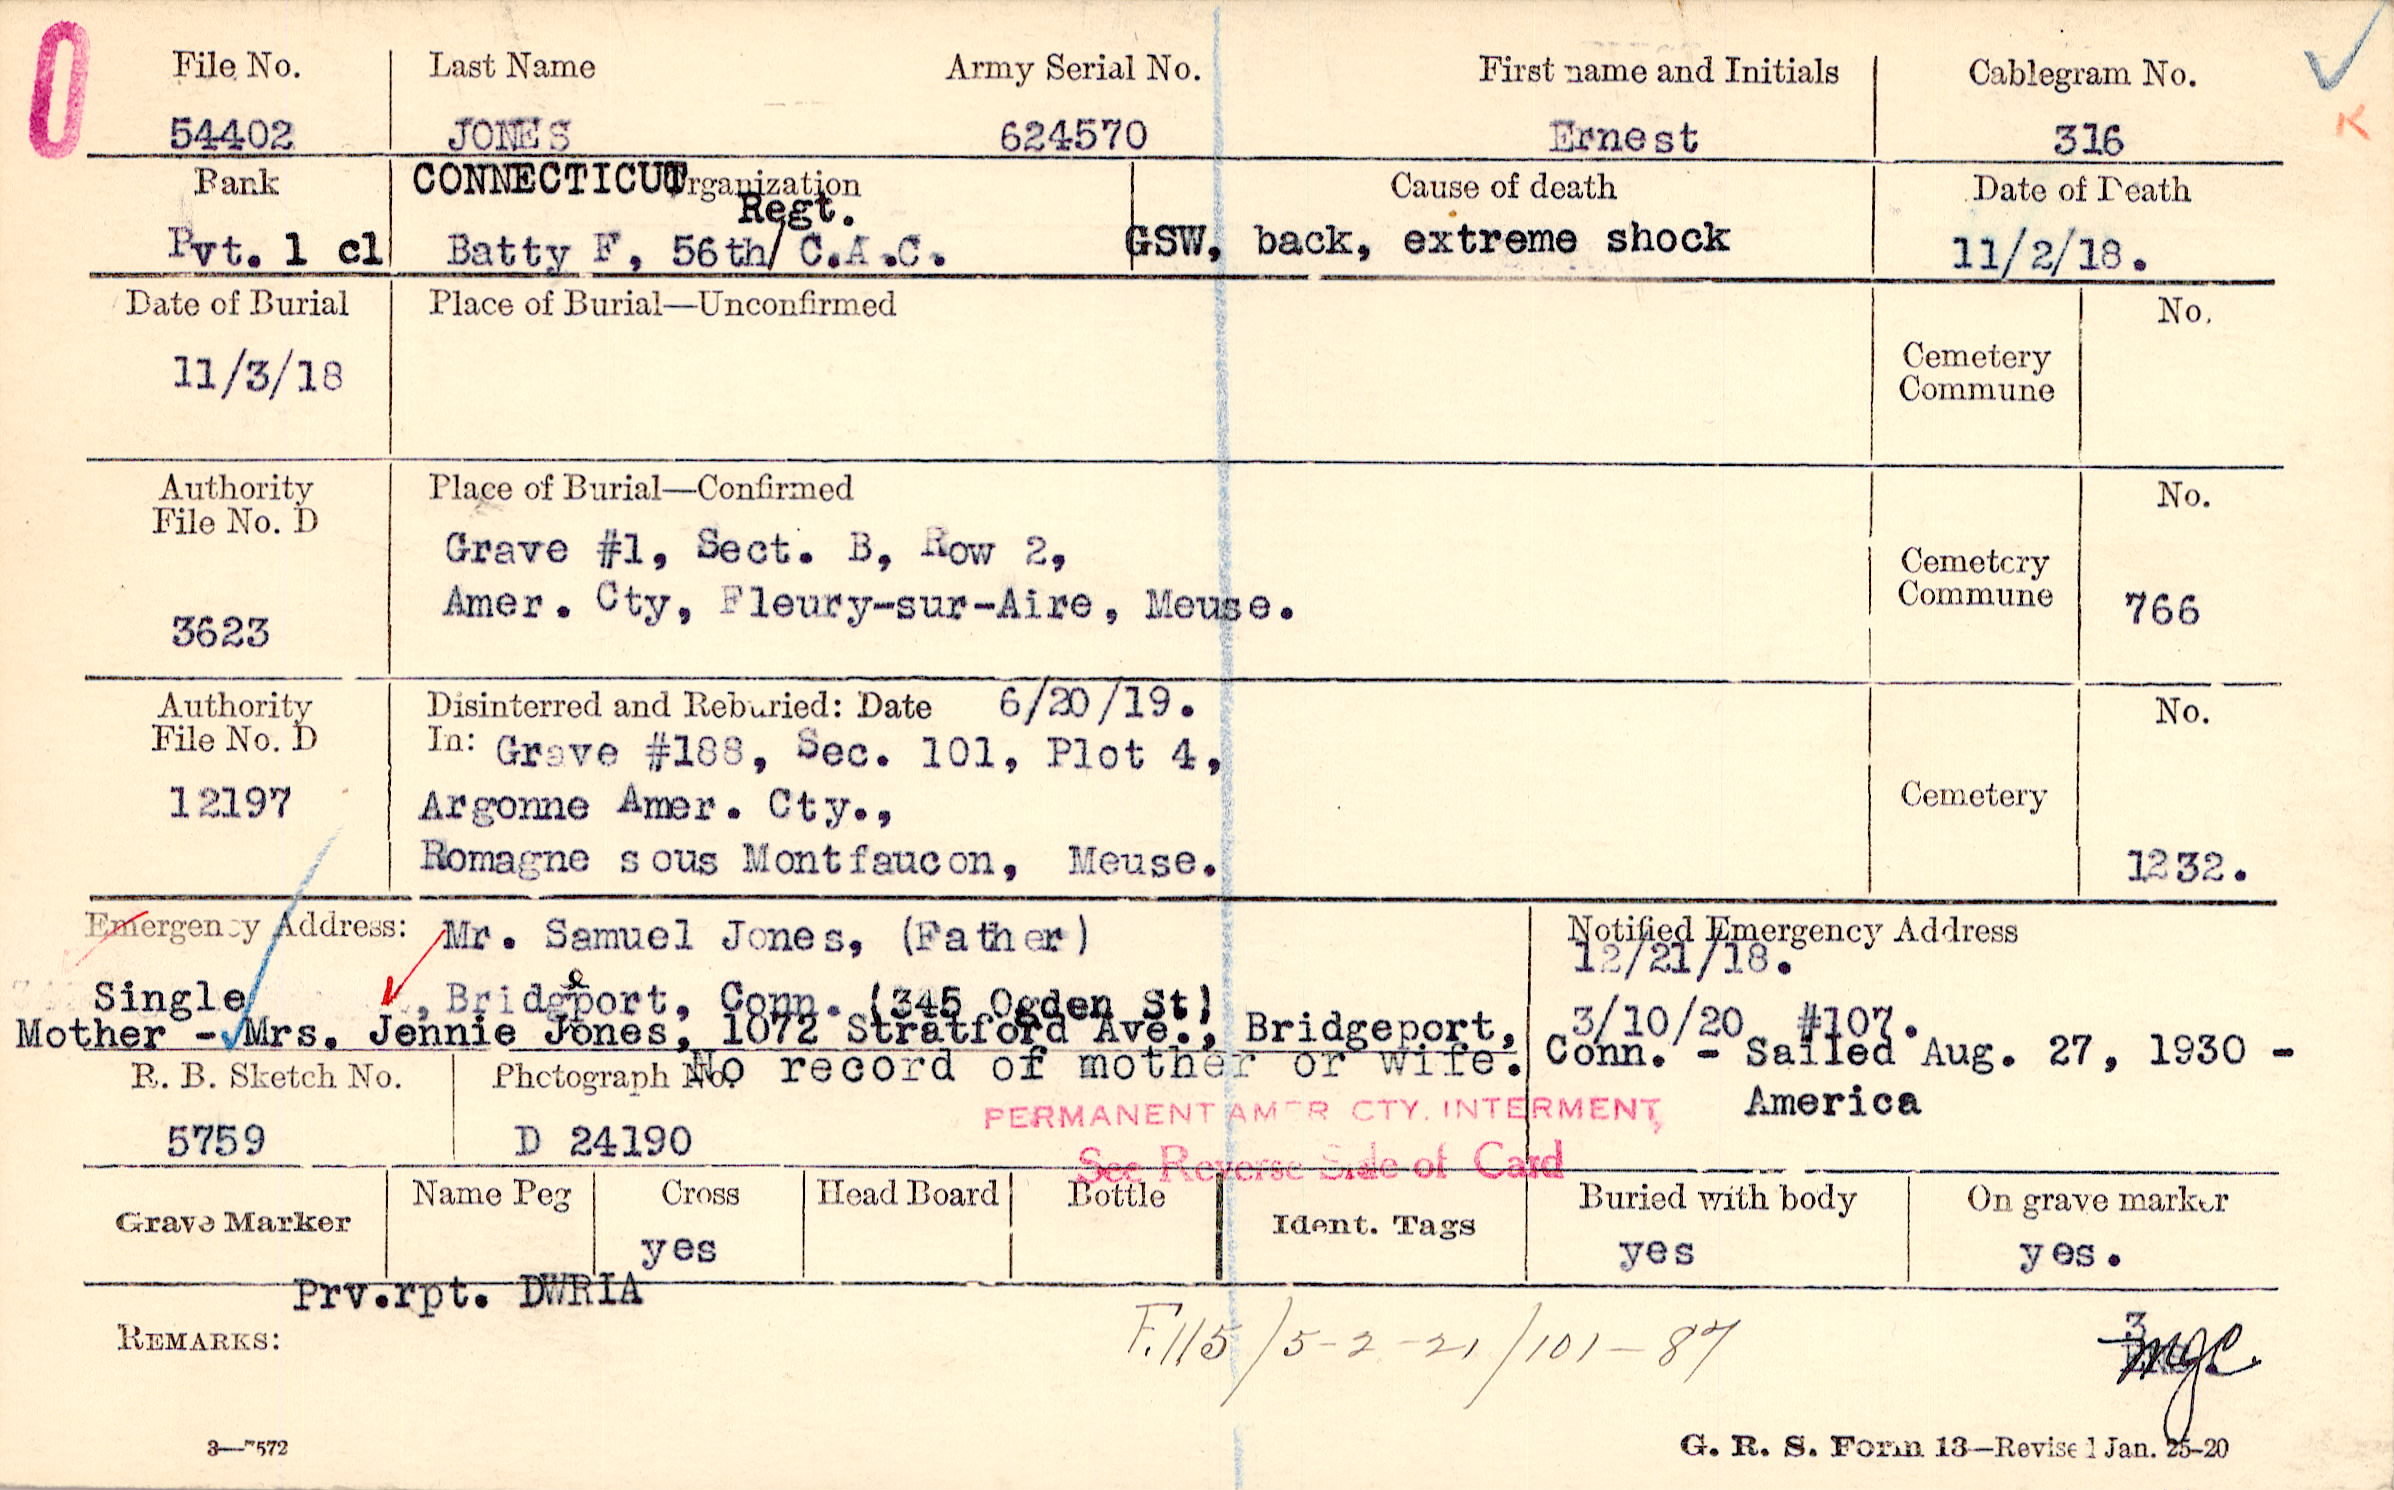 File No. Last Name Army Serial No. First name and Initials Cablegram No.
54402 JONES 624570 Ernest 316
K
Rank CONNECTICUT Organization Cause of death Date of Death
Regt.
Pvt. 1 cl Batty F, 56th/ C.A.C. GSW, back, extreme shock 11/2/18.
Date of Burial Place of Burial—Unconfirmed No.
11/3/18 Cemetery
Commune
Authority Place of Burial—Confirmed No.
File No. D
Grave #1, Sect. B, Row 2, Cemetery
Amer. Cty, Fleury-sur-Aire, Meuse. Commune 766
3623
Authority Disinterred and Reburied: Date 6/20/19. No.
File No. D In: Grave #188, Sec. 101, Plot 4,
12197 Argonne Amer. Cty., Cemetery
Romagne sous Montfaucon, Meuse. 1232.
Emergency Address: Mr. Samuel Jones, (Father) Notified Emergency Address
12/21/18.
Single , Bridgeport, Conn. (345 Ogden St) 3/10/20 #107.
Mother - Mrs. Jennie Jones, 1072 Stratford Ave., Bridgeport, Conn. - Sailed Aug. 27, 1930 -
America
R. B. Sketch No. Photograph No. No record of mother or wife.
PERMANENT AMER CTY. INTERMENT
5759 D 24190
See Reverse Side of Card
Grave Marker Name Peg Cross Head Board Bottle Ident. Tags Buried with body On grave marker
yes yes yes.
Prv.rpt. DWRIA
REMARKS: F.115/5-2-21/101-87 3
mgc.
3—7572 G. R. S. Form 13—Revised Jan. 25-20